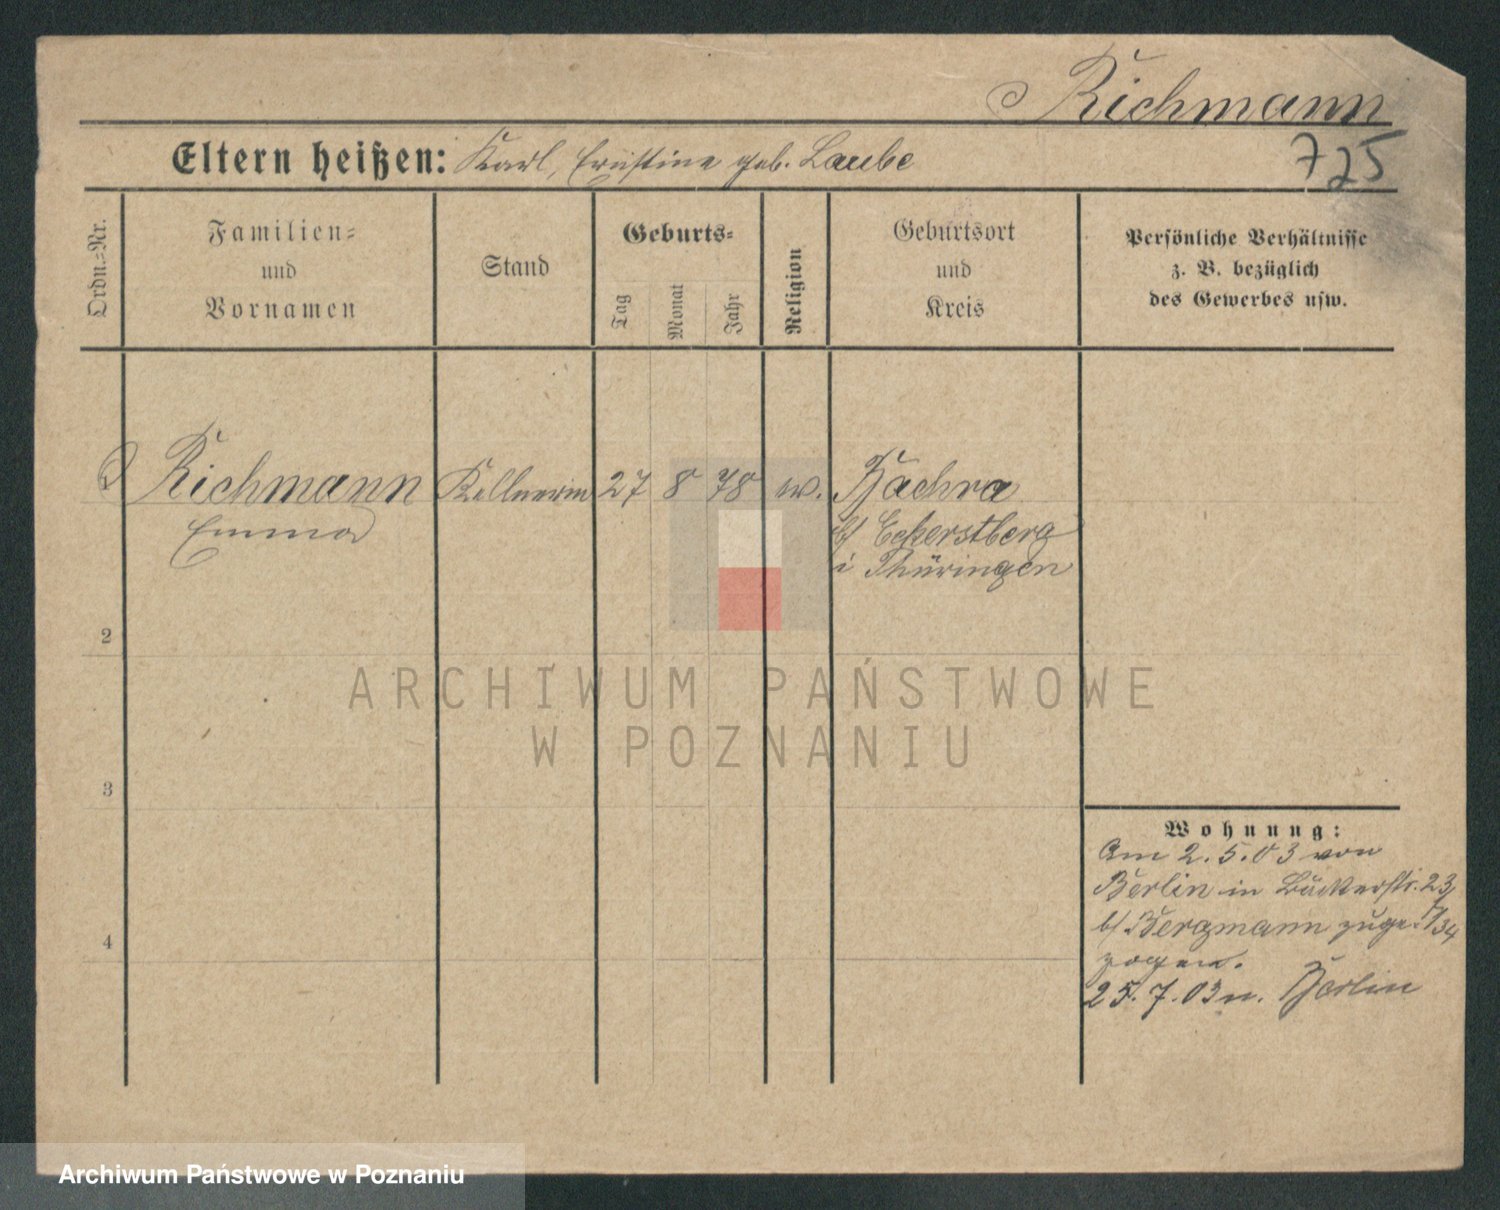 Richmann
725
Eltern heißen: Karl, Ernstine geb. Laube
Ordn.-Nr.
Familien-
und
Vornamen
Stand
Geburts-
Tag
Monat
Jahr
Religion
Geburtsort
und
Kreis
Persönliche Verhältnisse
z. B. bezüglich
des Gewerbes usw.
Richmann Kellnerin 27 8 78 ev. Bachra
Emma
b/ Eckerstberg
i Thüringen
2
3
4
ARCHIWUM PAŃSTWOWE
W POZNANIU
Wohnung:
Am 2.5.03 von
Berlin in Bäckerstr. 23/
b/ Bergmann zuge-
zogen.
25.7.03 n. Berlin
Archiwum Państwowe w Poznaniu